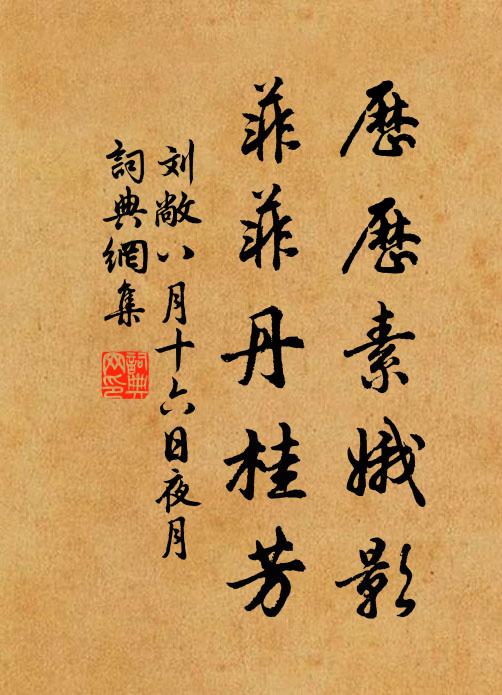 歷歷素娥影
菲菲丹桂芳
刘敞八月十六日夜月
詞典網集
詞典网印